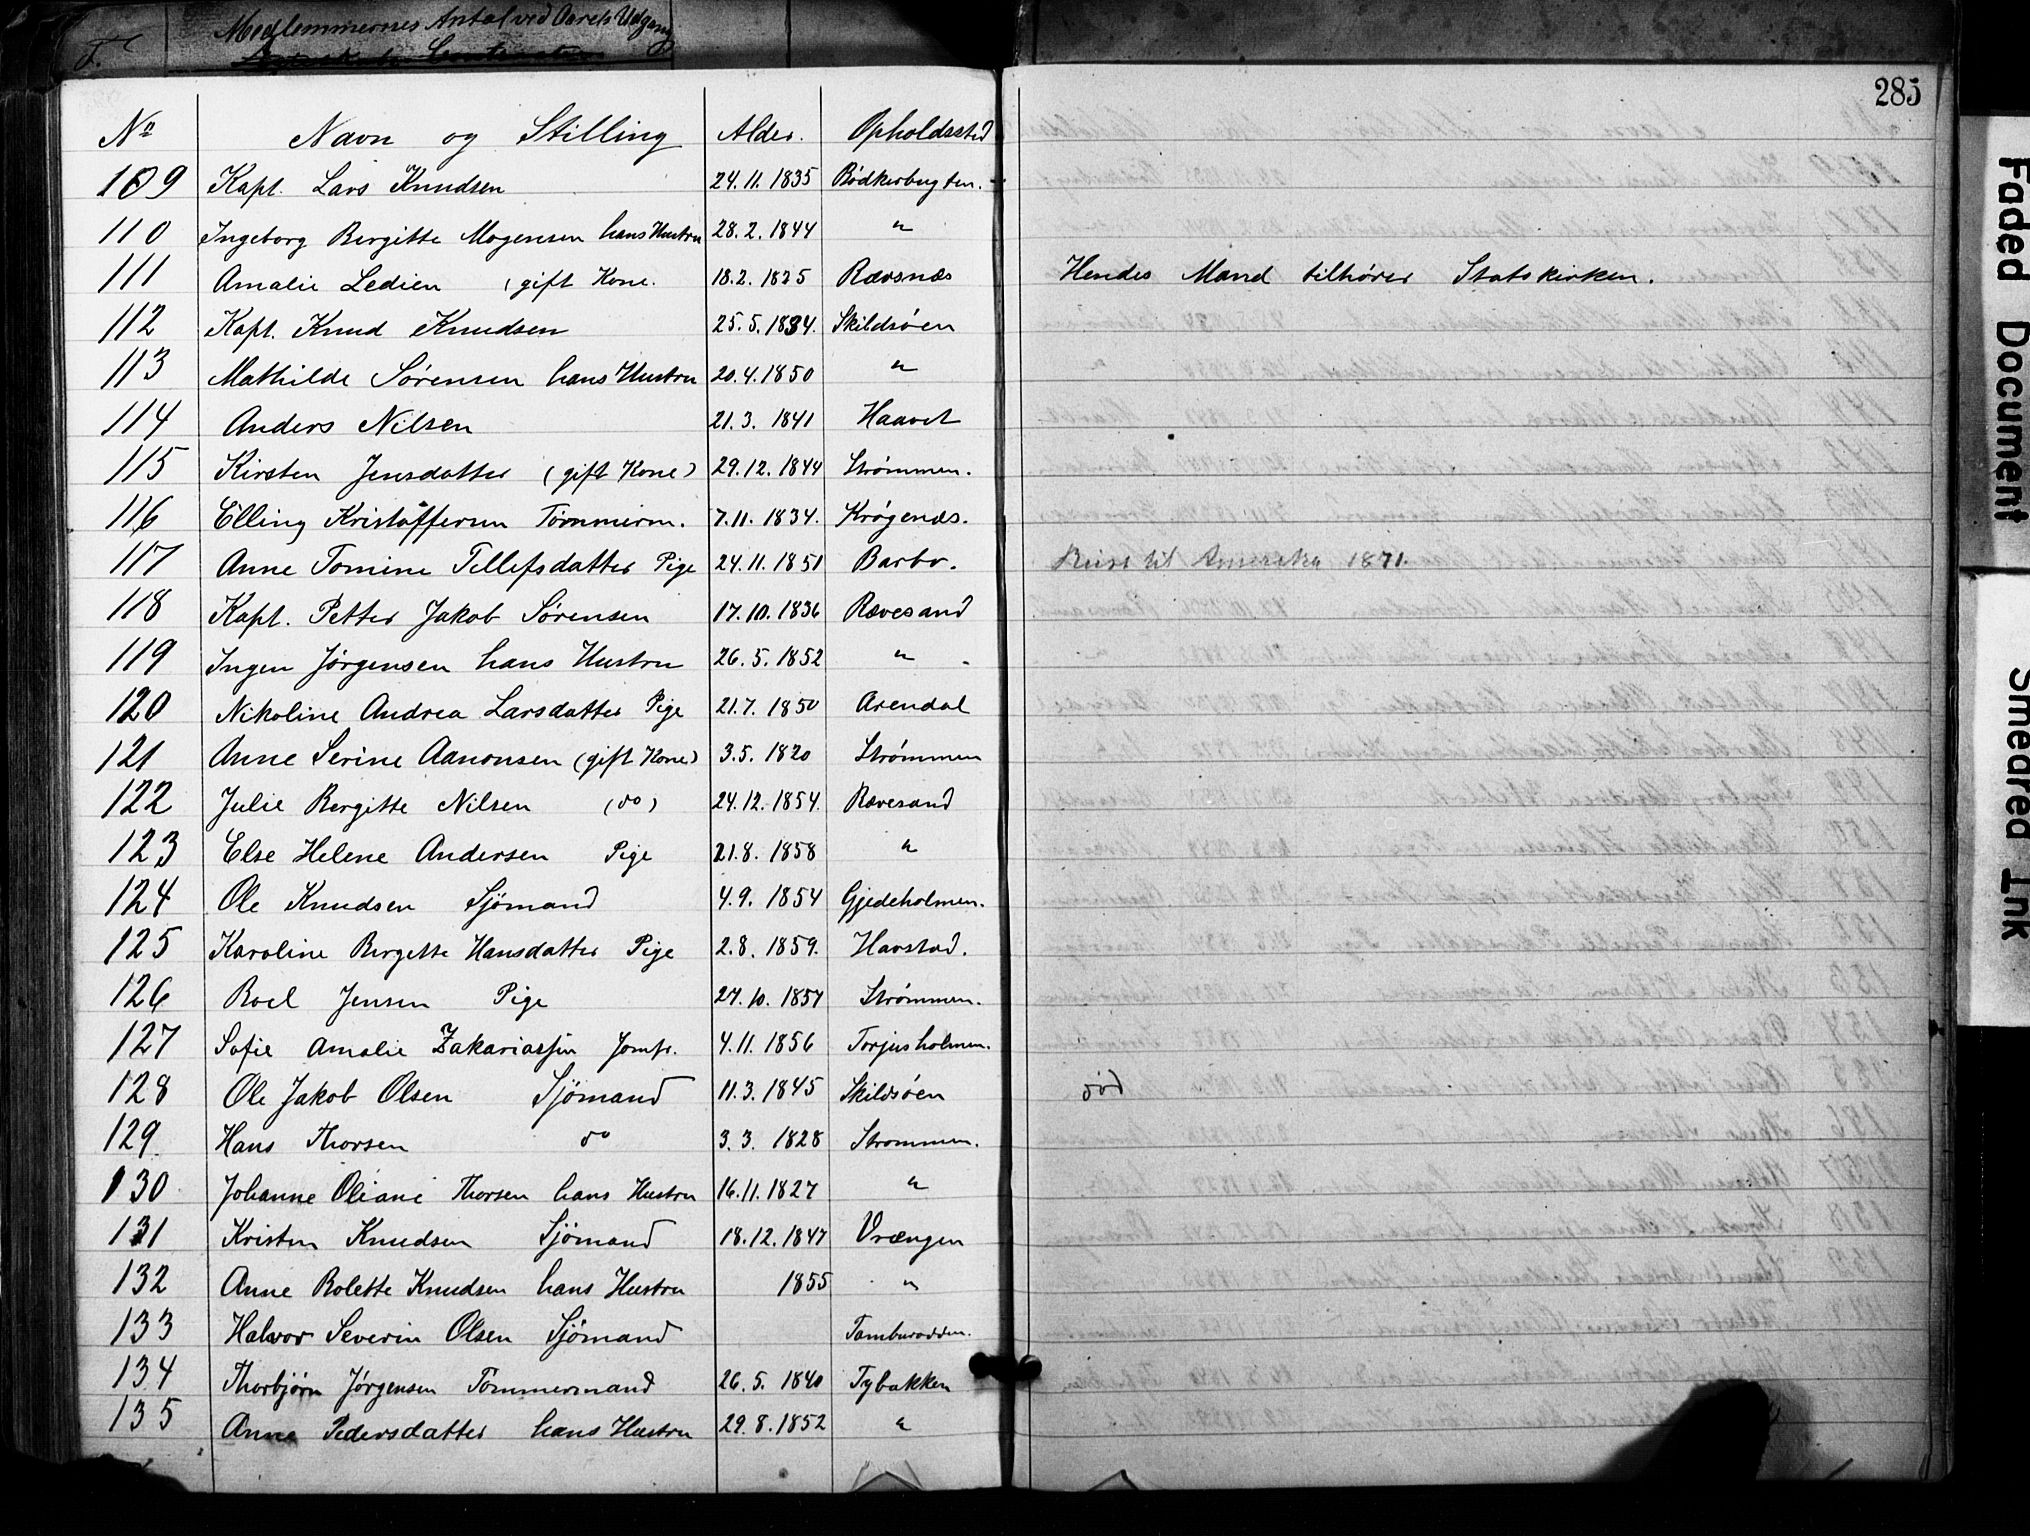 T.
Medlemmernes Antal ved Aarets Udgang
285
No Navn og Stilling Alder. Opholdssted
109 Kapt. Lars Knudsen 24.11.1835 Bødkerbugten.
110 Ingeborg Bergitte Mogensen hans Hustru 28.2.1844 "
111 Amalie Ledien (gift Kone. 18.2.1825 Rævsnæs Hendes Mand tilhører Statskirken.
112 Kapt. Knud Knudsen 25.5.1834. Skildsøen
113 Mathilde Sørensen hans Hustru 20.4.1850 "
114 Anders Nilsen 21.3.1841 Haavet
115 Kirsten Jensdatter (gift Kone) 29.12.1844 Strømmen.
116 Elling Kristoffersen Tømmerm. 7.11.1834. Krøgenæs.
117 Anne Tomine Tellefsdatter Pige 24.11.1851 Barbo. Reist til Amerika 1871.
118 Kapt. Petter Jakob Sørensen 17.10.1836 Rævesand
119 Ingen Jørgensen hans Hustru 26.5.1852 "
120 Nikoline Andrea Larsdatter Pige 21.7.1850 Arendal
121 Anne Serine Aanonsen (gift Kone) 3.5.1820 Strømmen
122 Julie Bergitte Nilsen (do) 24.12.1854. Rævesand
123 Else Helene Andersen Pige 21.8.1858 "
124 Ole Knudsen Sjømand 4.9.1854 Gjedeholmen.
125 Karoline Bergette Hansdatter Pige 2.8.1859. Havstad.
126 Roel Jensen Pige 27.10.1857 Strømmen.
127 Sofie Amalie Zakariassen Jomfr. 4.11.1856 Torjusholmen.
128 Ole Jakob Olsen Sjømand 11.3.1845 Skildsøen død
129. Hans Thorsen do 3.3.1828 Strømmen.
130 Johanne Oliane Thorsen hans Hustru 16.11.1827 "
131 Kristen Knudsen Sjømand 18.12.1847 Vrængen
132 Anne Rolette Knudsen hans Hustru 1855 "
133 Halvor Severin Olsen Sjømand Tamburodden.
134 Thorbjørn Jørgensen Tømmermand 26.5.1840 Tybakken
135 Anne Pedersdatter hans Hustru 29.8.1852 "
Faded Document
Smeared Ink